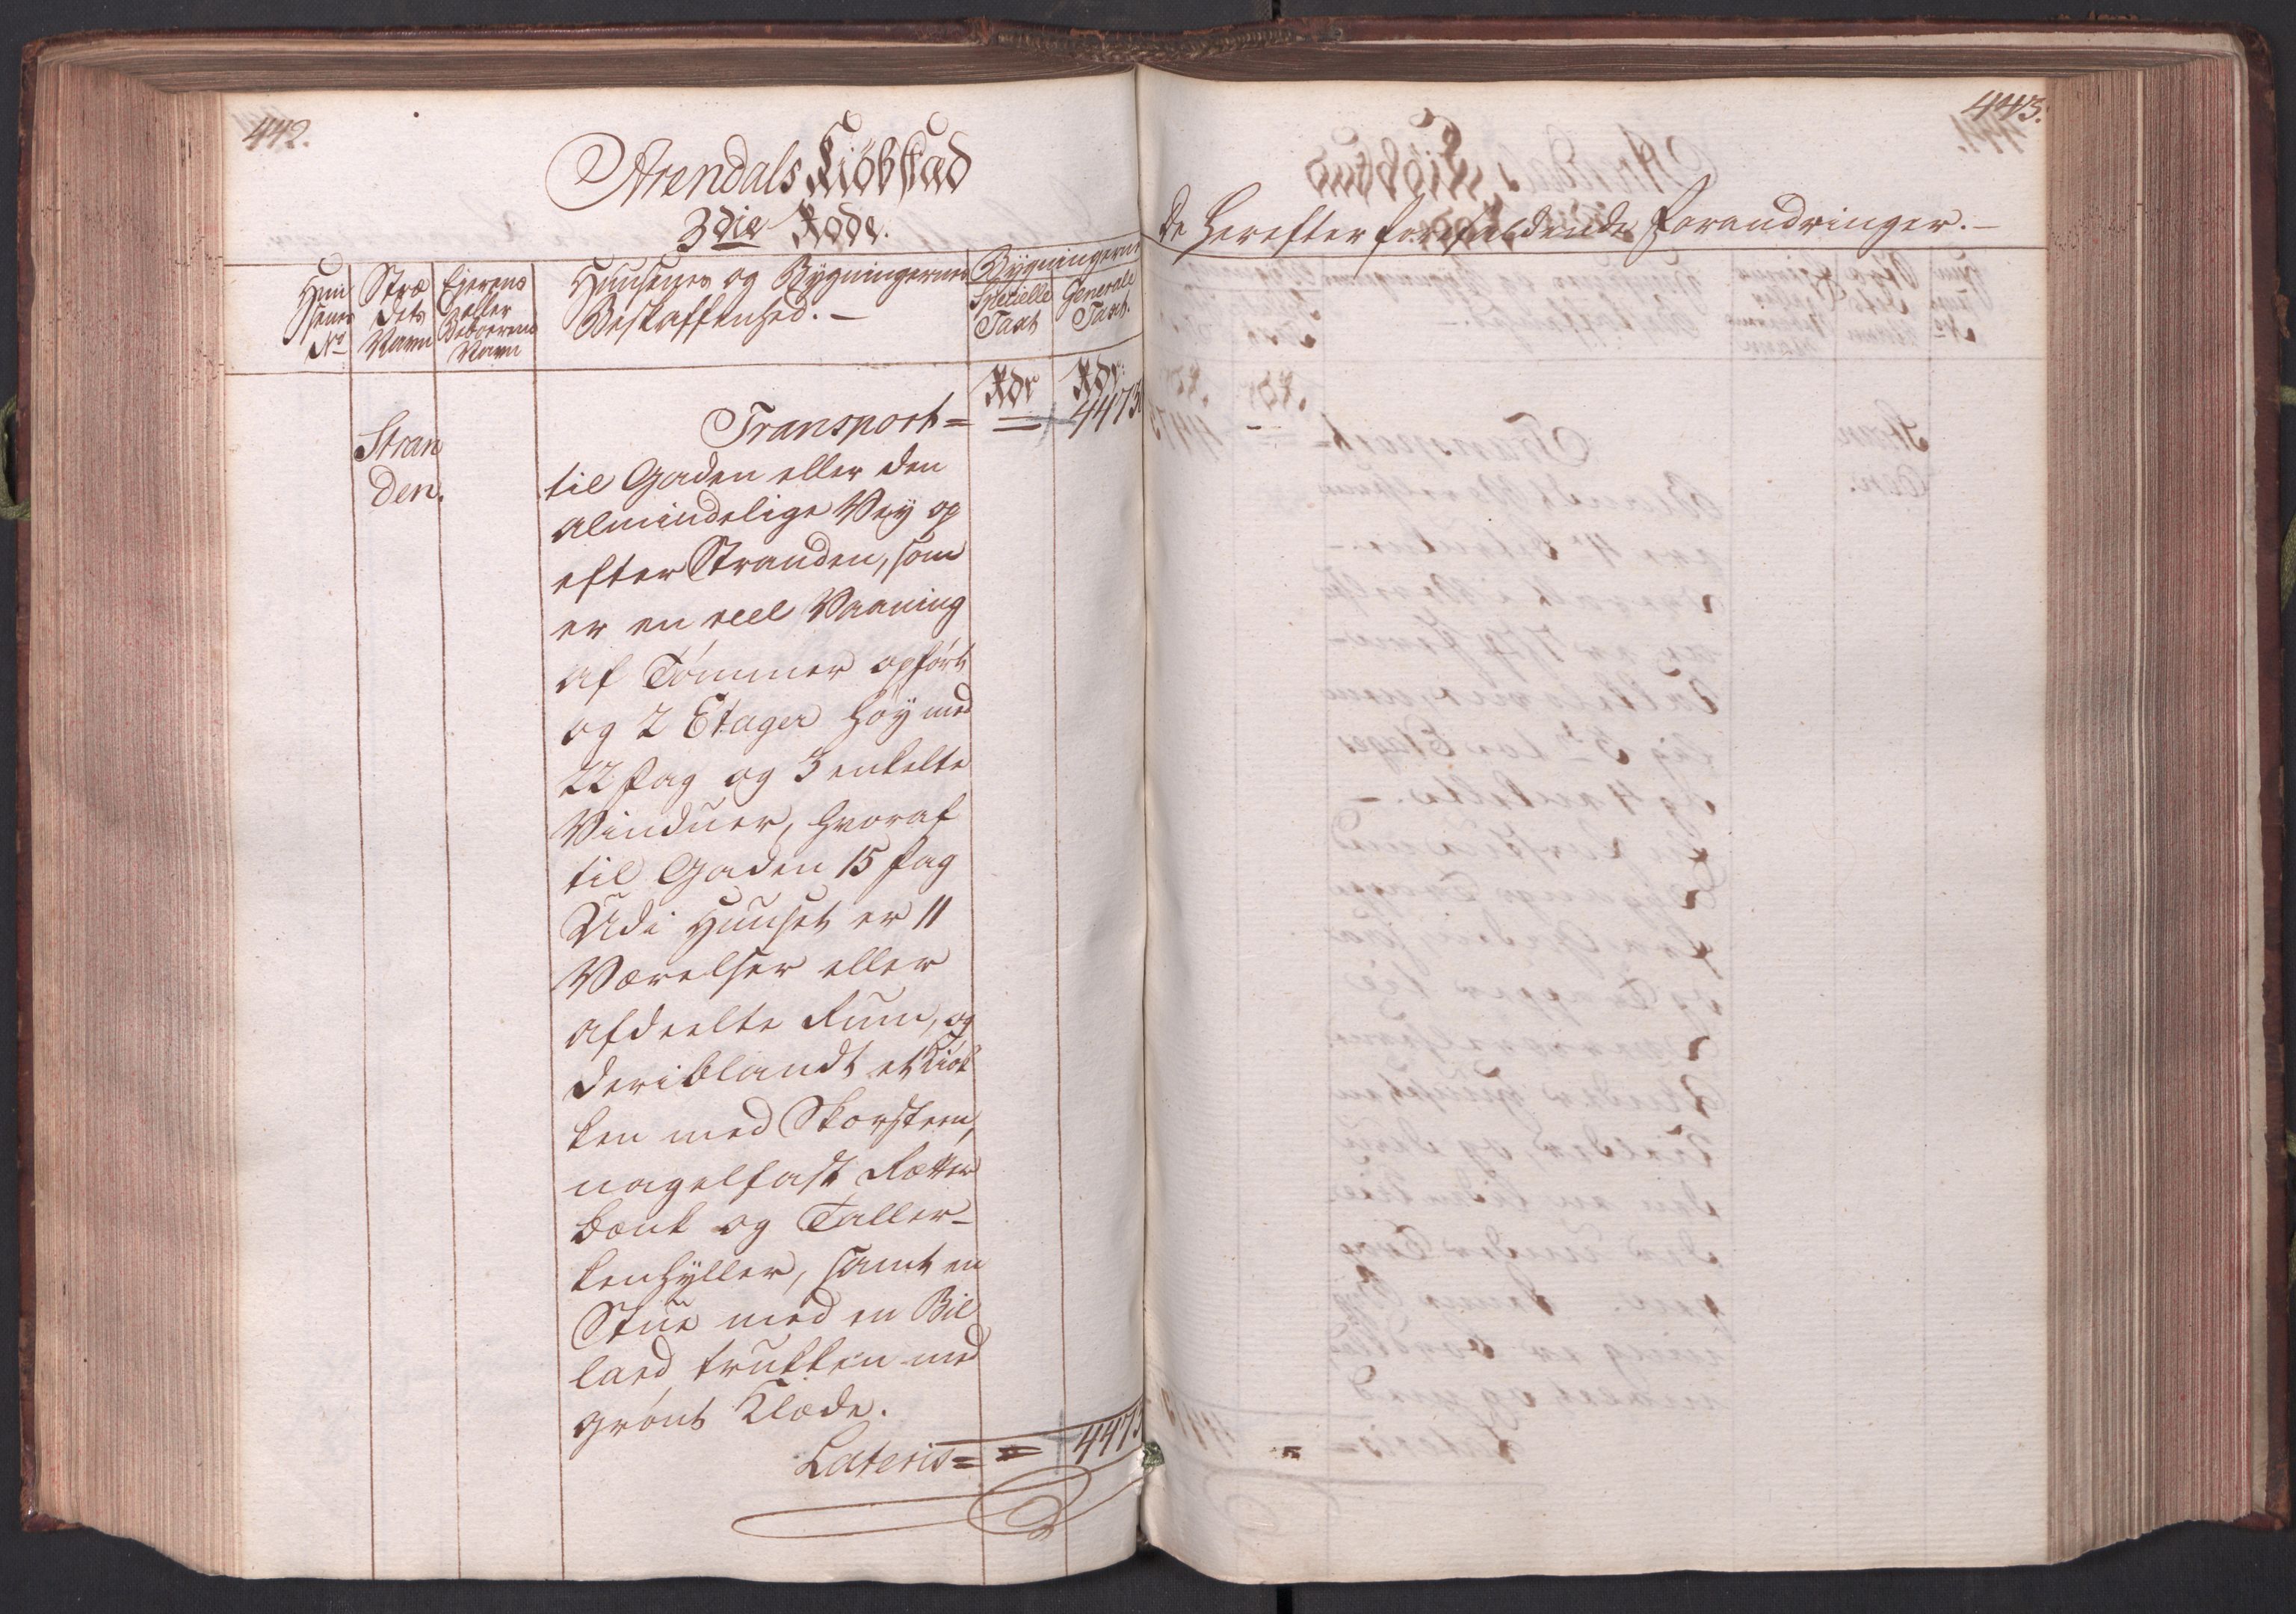 442.
Arendals Kiöbstad
3die Rode.
Huu
senes
No
Stræ
dets
Navn
Ejerens
eller
Beboerens
Navn
Huusenes og Bÿgningernes
Beskaffenhed. —
Bÿgningernes
Specielle
Taxt
Generale
Taxt.
Rdr
Rdr.
Transport =
=
4473.
Stran
den.
til Gaden eller den
almindelige Veÿ op
efter Stranden, som
er en reel Vaaning
af Tömmer opfört
og 2 Etager höÿ med
22 fag og 3 enkelte
Vinduer, hvoraf
til Gaden 15 fag
Udi Huuset er 11
Værelser eller
afdeelte Rum, og
deriblandt et Kiök
ken med Skorsteen,
nagelfast Retter
bænk og Taller-
kenhÿller, samt en
Stue med en Bil
lard trukken med
grönt Klæde.
Lateris = = 4473
443.
De herefter forefaldende Forandringer. —